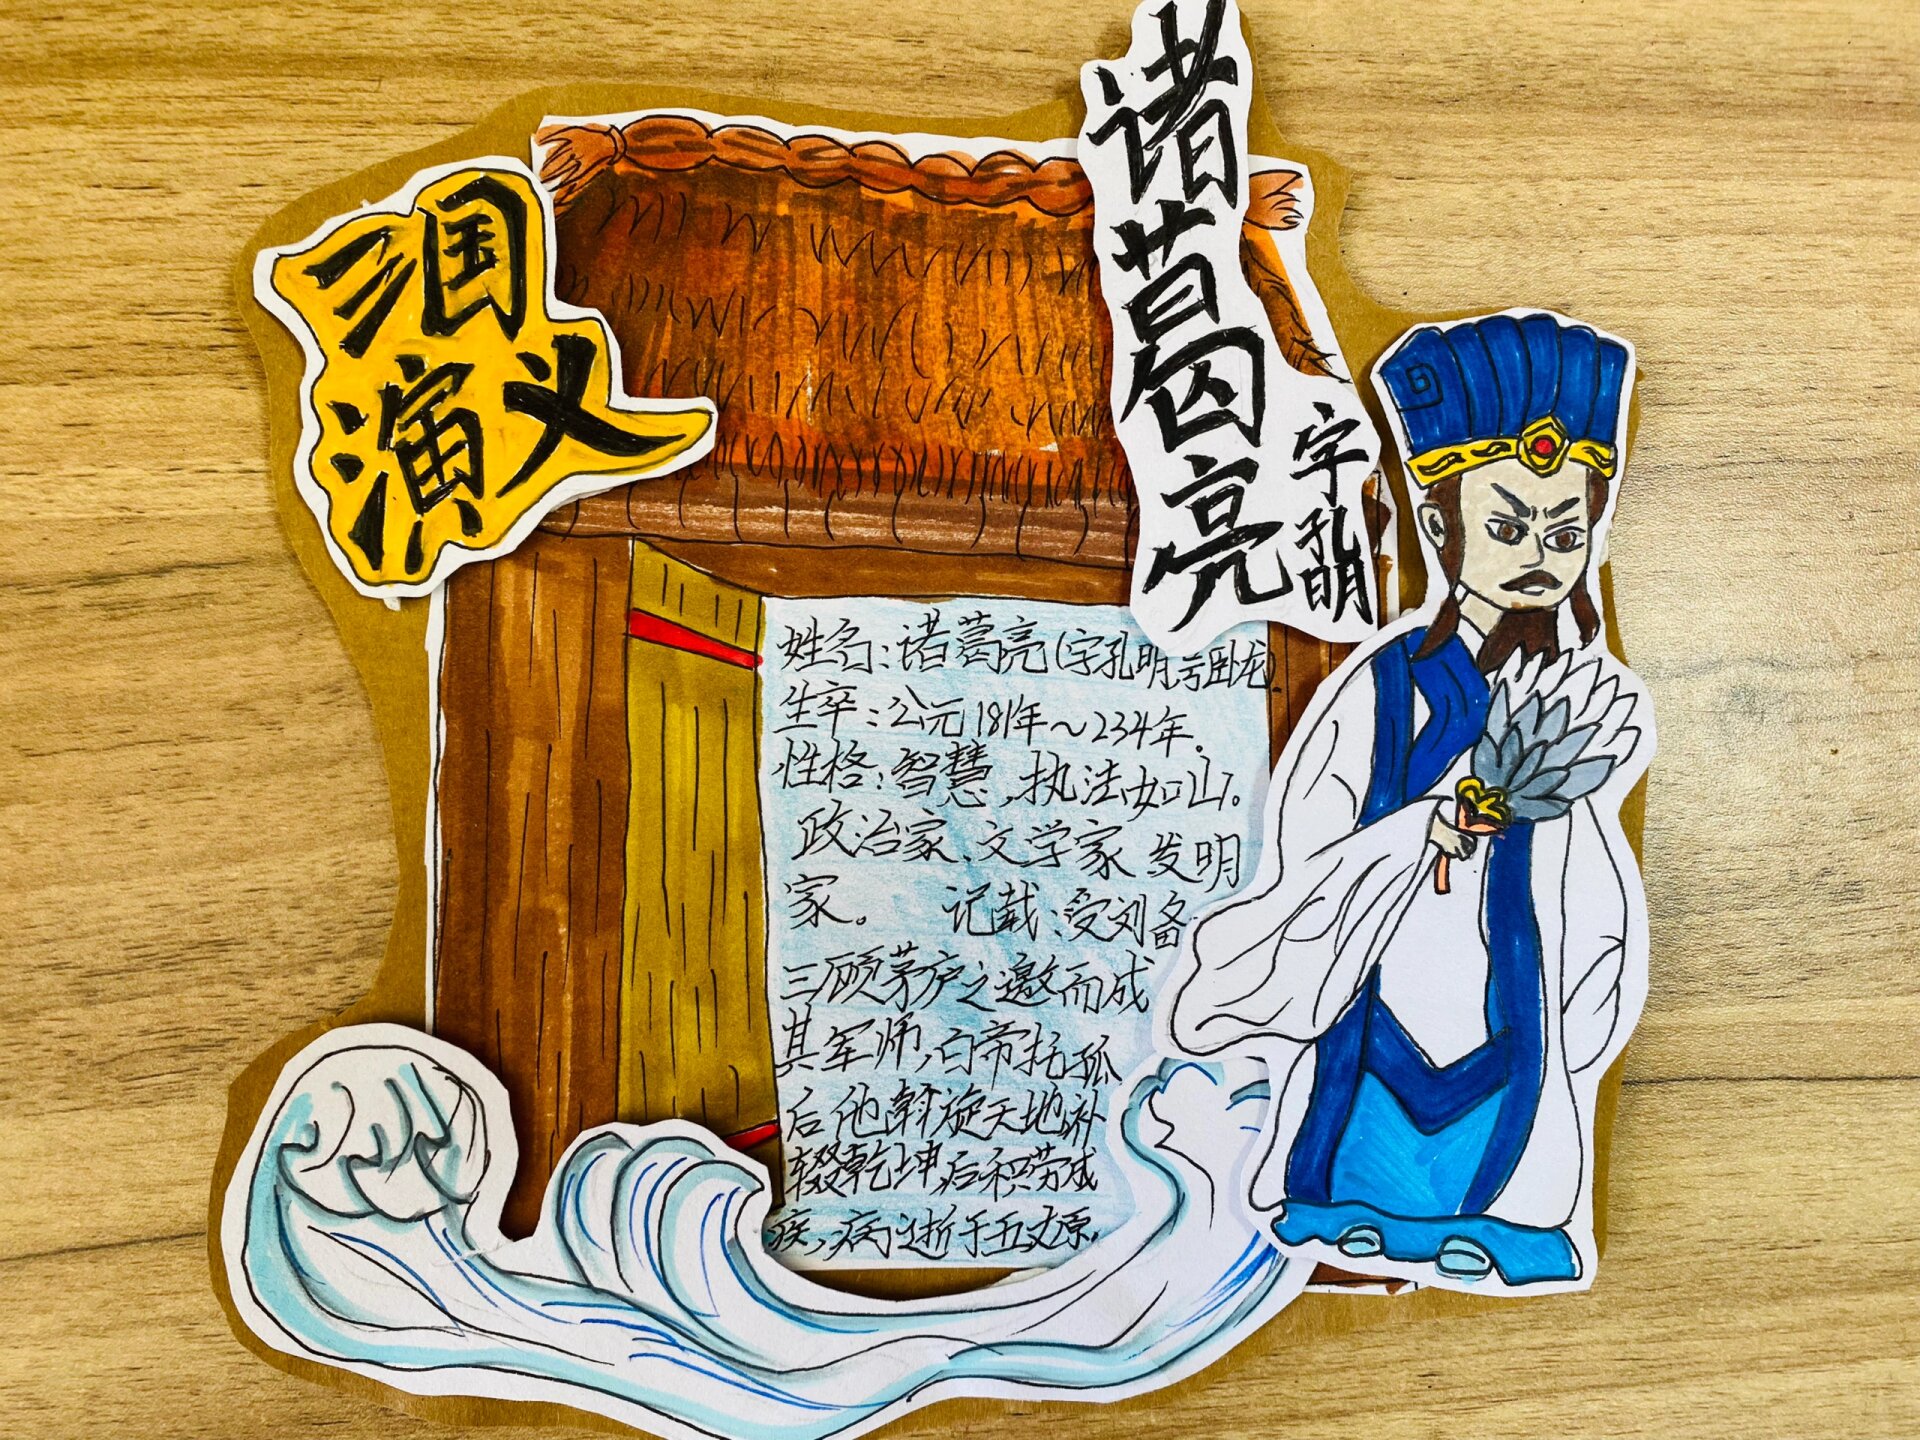 三国
演义
诸葛亮
字孔明
姓名：诸葛亮（字孔明,号卧龙）.
生卒：公元181年～234年。
性格：智慧，执法如山。
政治家、文学家 发明
家。 记载：受刘备
三顾茅庐之邀而成
其军师，白帝托孤
后他斡旋天地补
辍乾坤,后积劳成
疾，病逝于五丈原.